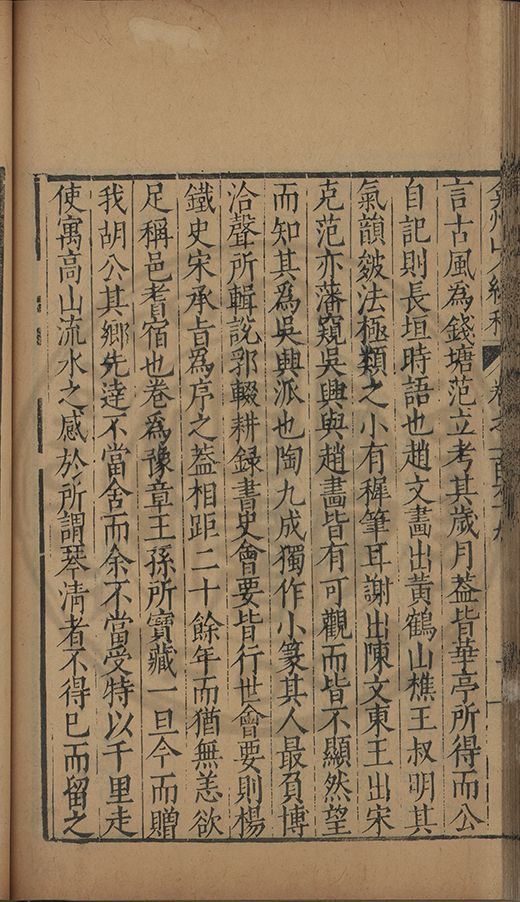 弇州山人續稿 卷之一百六十九
言古風為錢塘范立考其歲月葢皆華亭所得而公
自記則長垣時語也趙文畫出黃鶴山樵王叔明其
氣韻皴法極類之小有稺筆耳謝出陳文東王出宋
克范亦藩窺吳興與趙畵皆有可觀而皆不顯然望
而知其為吳興派也陶九成獨作小篆其人最負博
洽聲所輯説郛輟耕録書史會要皆行世會要則楊
鐵史宋承旨為序之葢相距二十餘年而猶無恙欲
足稱邑耆宿也卷為豫章王孫所寶藏一旦今而贈
我胡公其鄉先達不當舍而余不當受特以千里走
使寓高山流水之感於所謂琴清者不得已而留之